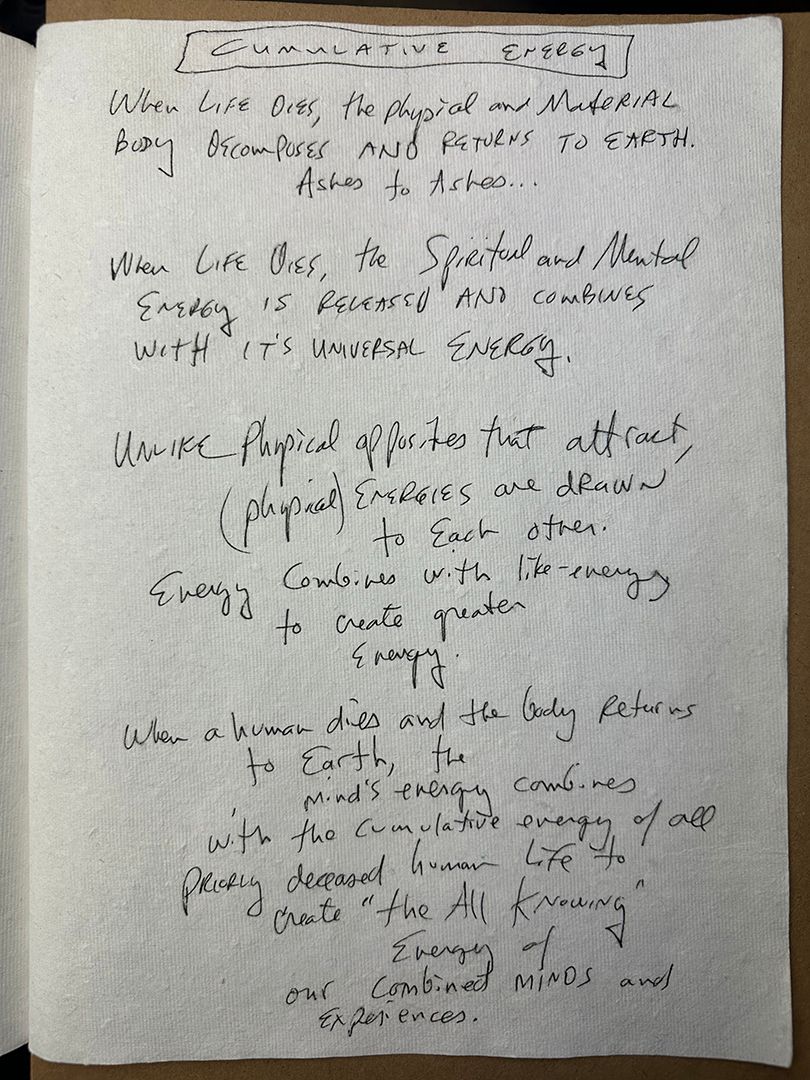 CUMULATIVE ENERGY
When LIFE DIES, the physical and MATERIAL
BODY DECOMPOSES AND RETURNS TO EARTH.
Ashes to Ashes...
When LIFE DIES, the Spiritual and Mental
ENERGY IS RELEASED AND COMBINES
WITH IT'S UNIVERSAL ENERGY.
UNLIKE Physical opposites that attract,
(physical) ENERGIES are DRAWN
to Each other.
Energy Combines with like-energy
to create greater
Energy.
When a human dies and the body Returns
to Earth, the
Mind's energy combines
with the cumulative energy of all
PRIORLY deceased human Life to
create "the All KNOWING"
Energy of
our combined MINDS and
EXPERIENCES.